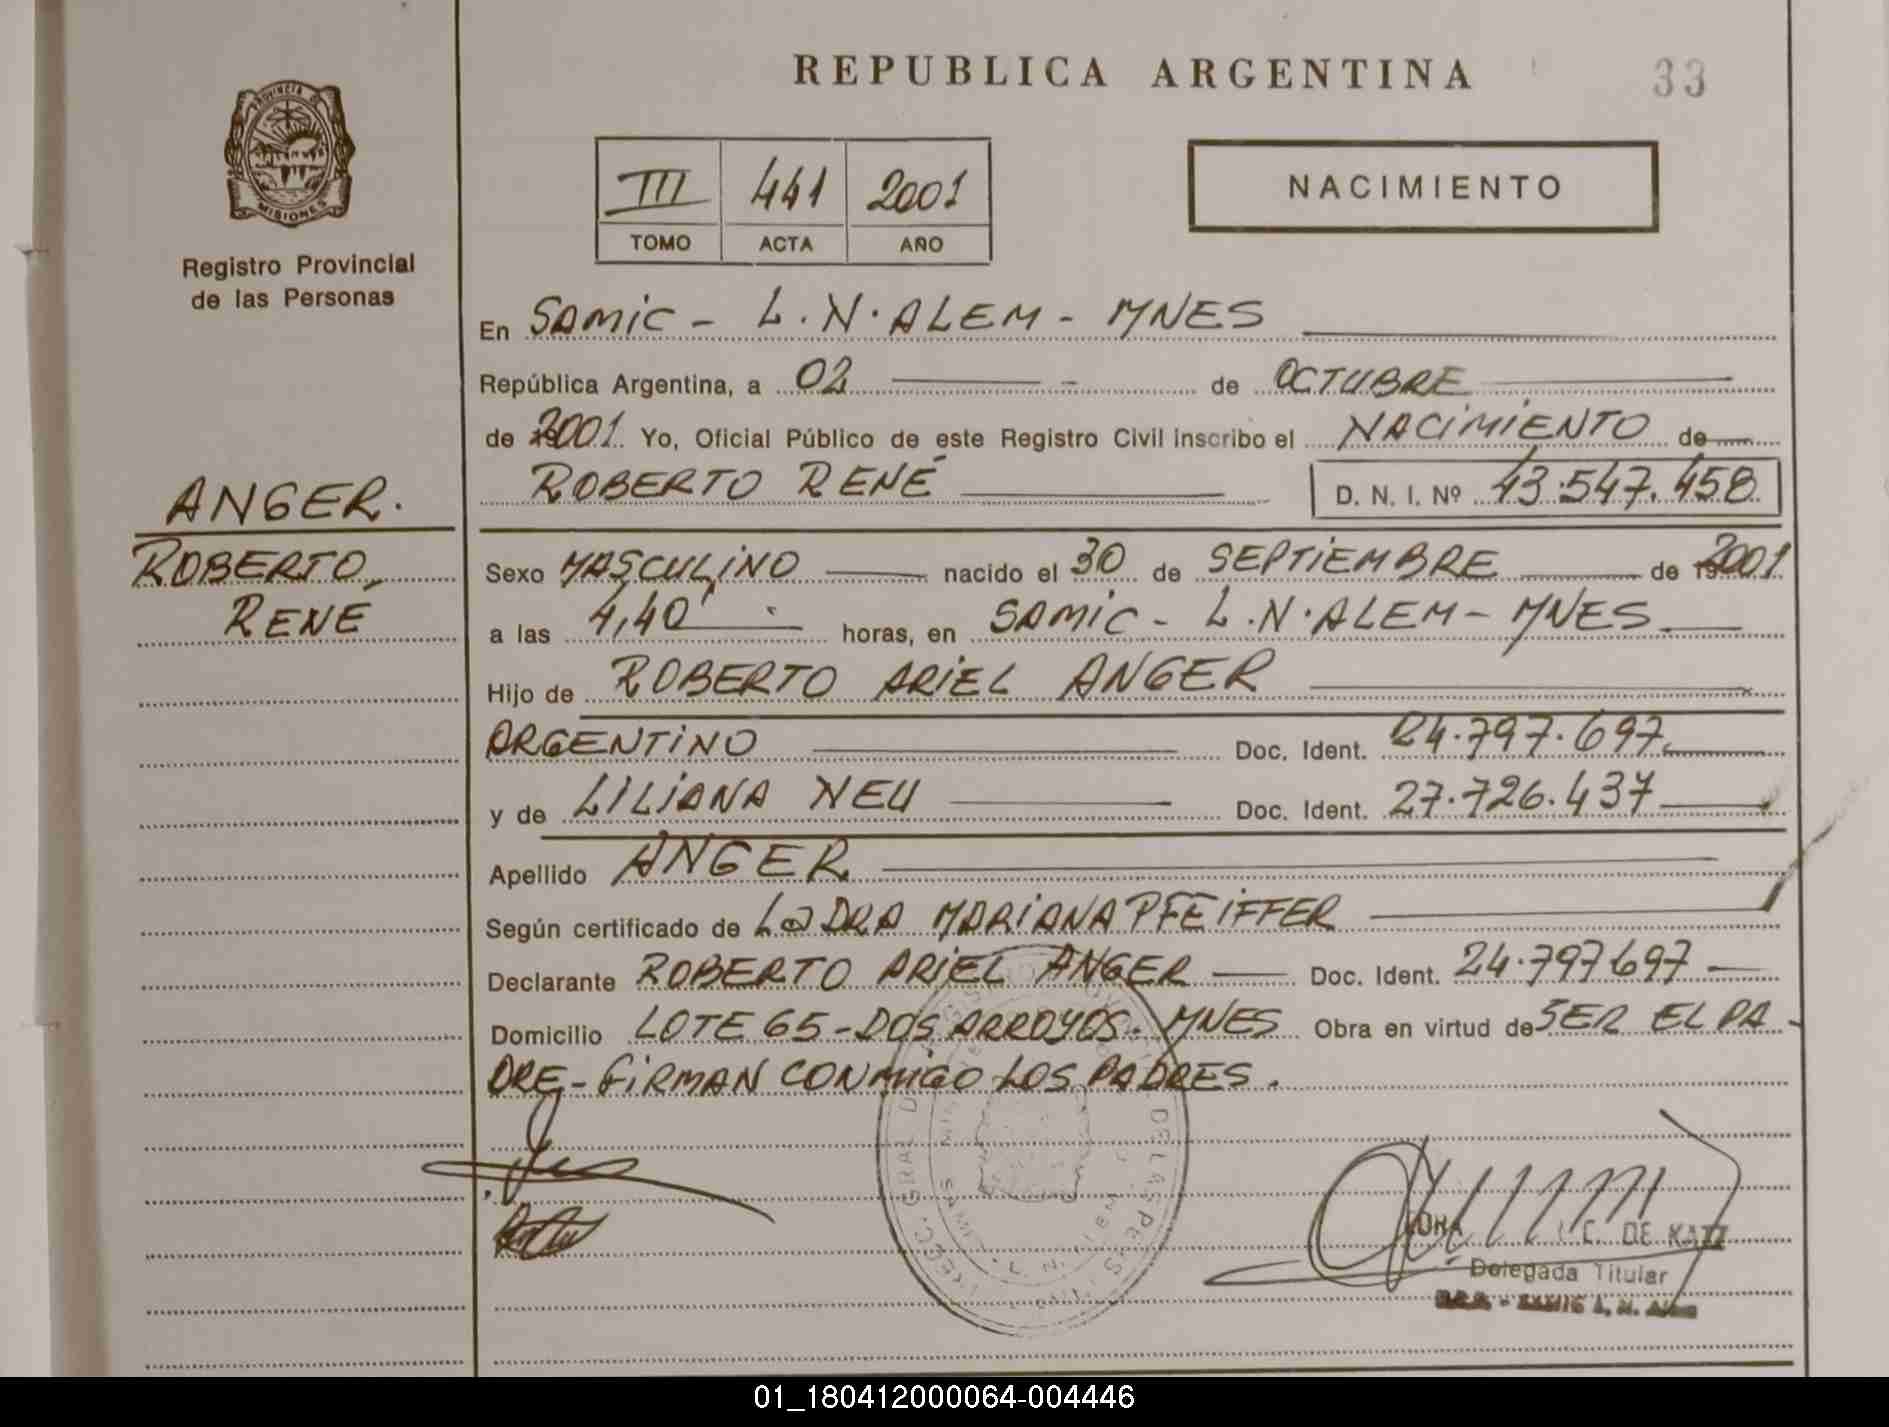 REPUBLICA ARGENTINA
33
PROVINCIA DE
MISIONES
Registro Provincial
de las Personas
III 441 2001
TOMO ACTA AÑO
NACIMIENTO
En SAMIC - L.N.ALEM - MNES
República Argentina, a 02 de OCTUBRE
de 2001. Yo, Oficial Público de este Registro Civil inscribo el NACIMIENTO de
ROBERTO RENÉ D. N. I. Nº 43.547.458
ANGER.
ROBERTO,
RENÉ
Sexo MASCULINO nacido el 30 de SEPTIEMBRE de 2001
a las 4,40 horas, en SAMIC - L.N.ALEM - MNES
Hijo de ROBERTO ARIEL ANGER
ARGENTINO Doc. Ident. 24.797.697
y de LILIANA NEU Doc. Ident. 27.726.437
Apellido ANGER
Según certificado de L@ DRA MARIANA PFEIFFER
Declarante ROBERTO ARIEL ANGER Doc. Ident. 24.797697
Domicilio LOTE 65 - DOS ARROYOS. MNES Obra en virtud de SER EL PA-
DRE - FIRMAN CONMIGO LOS PADRES.
C. DE KATZ
Delegada Titular
01_180412000064-004446